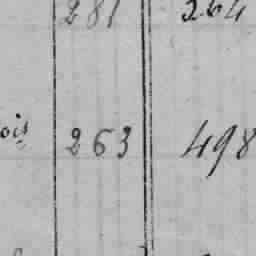 281 264
ois 263 498